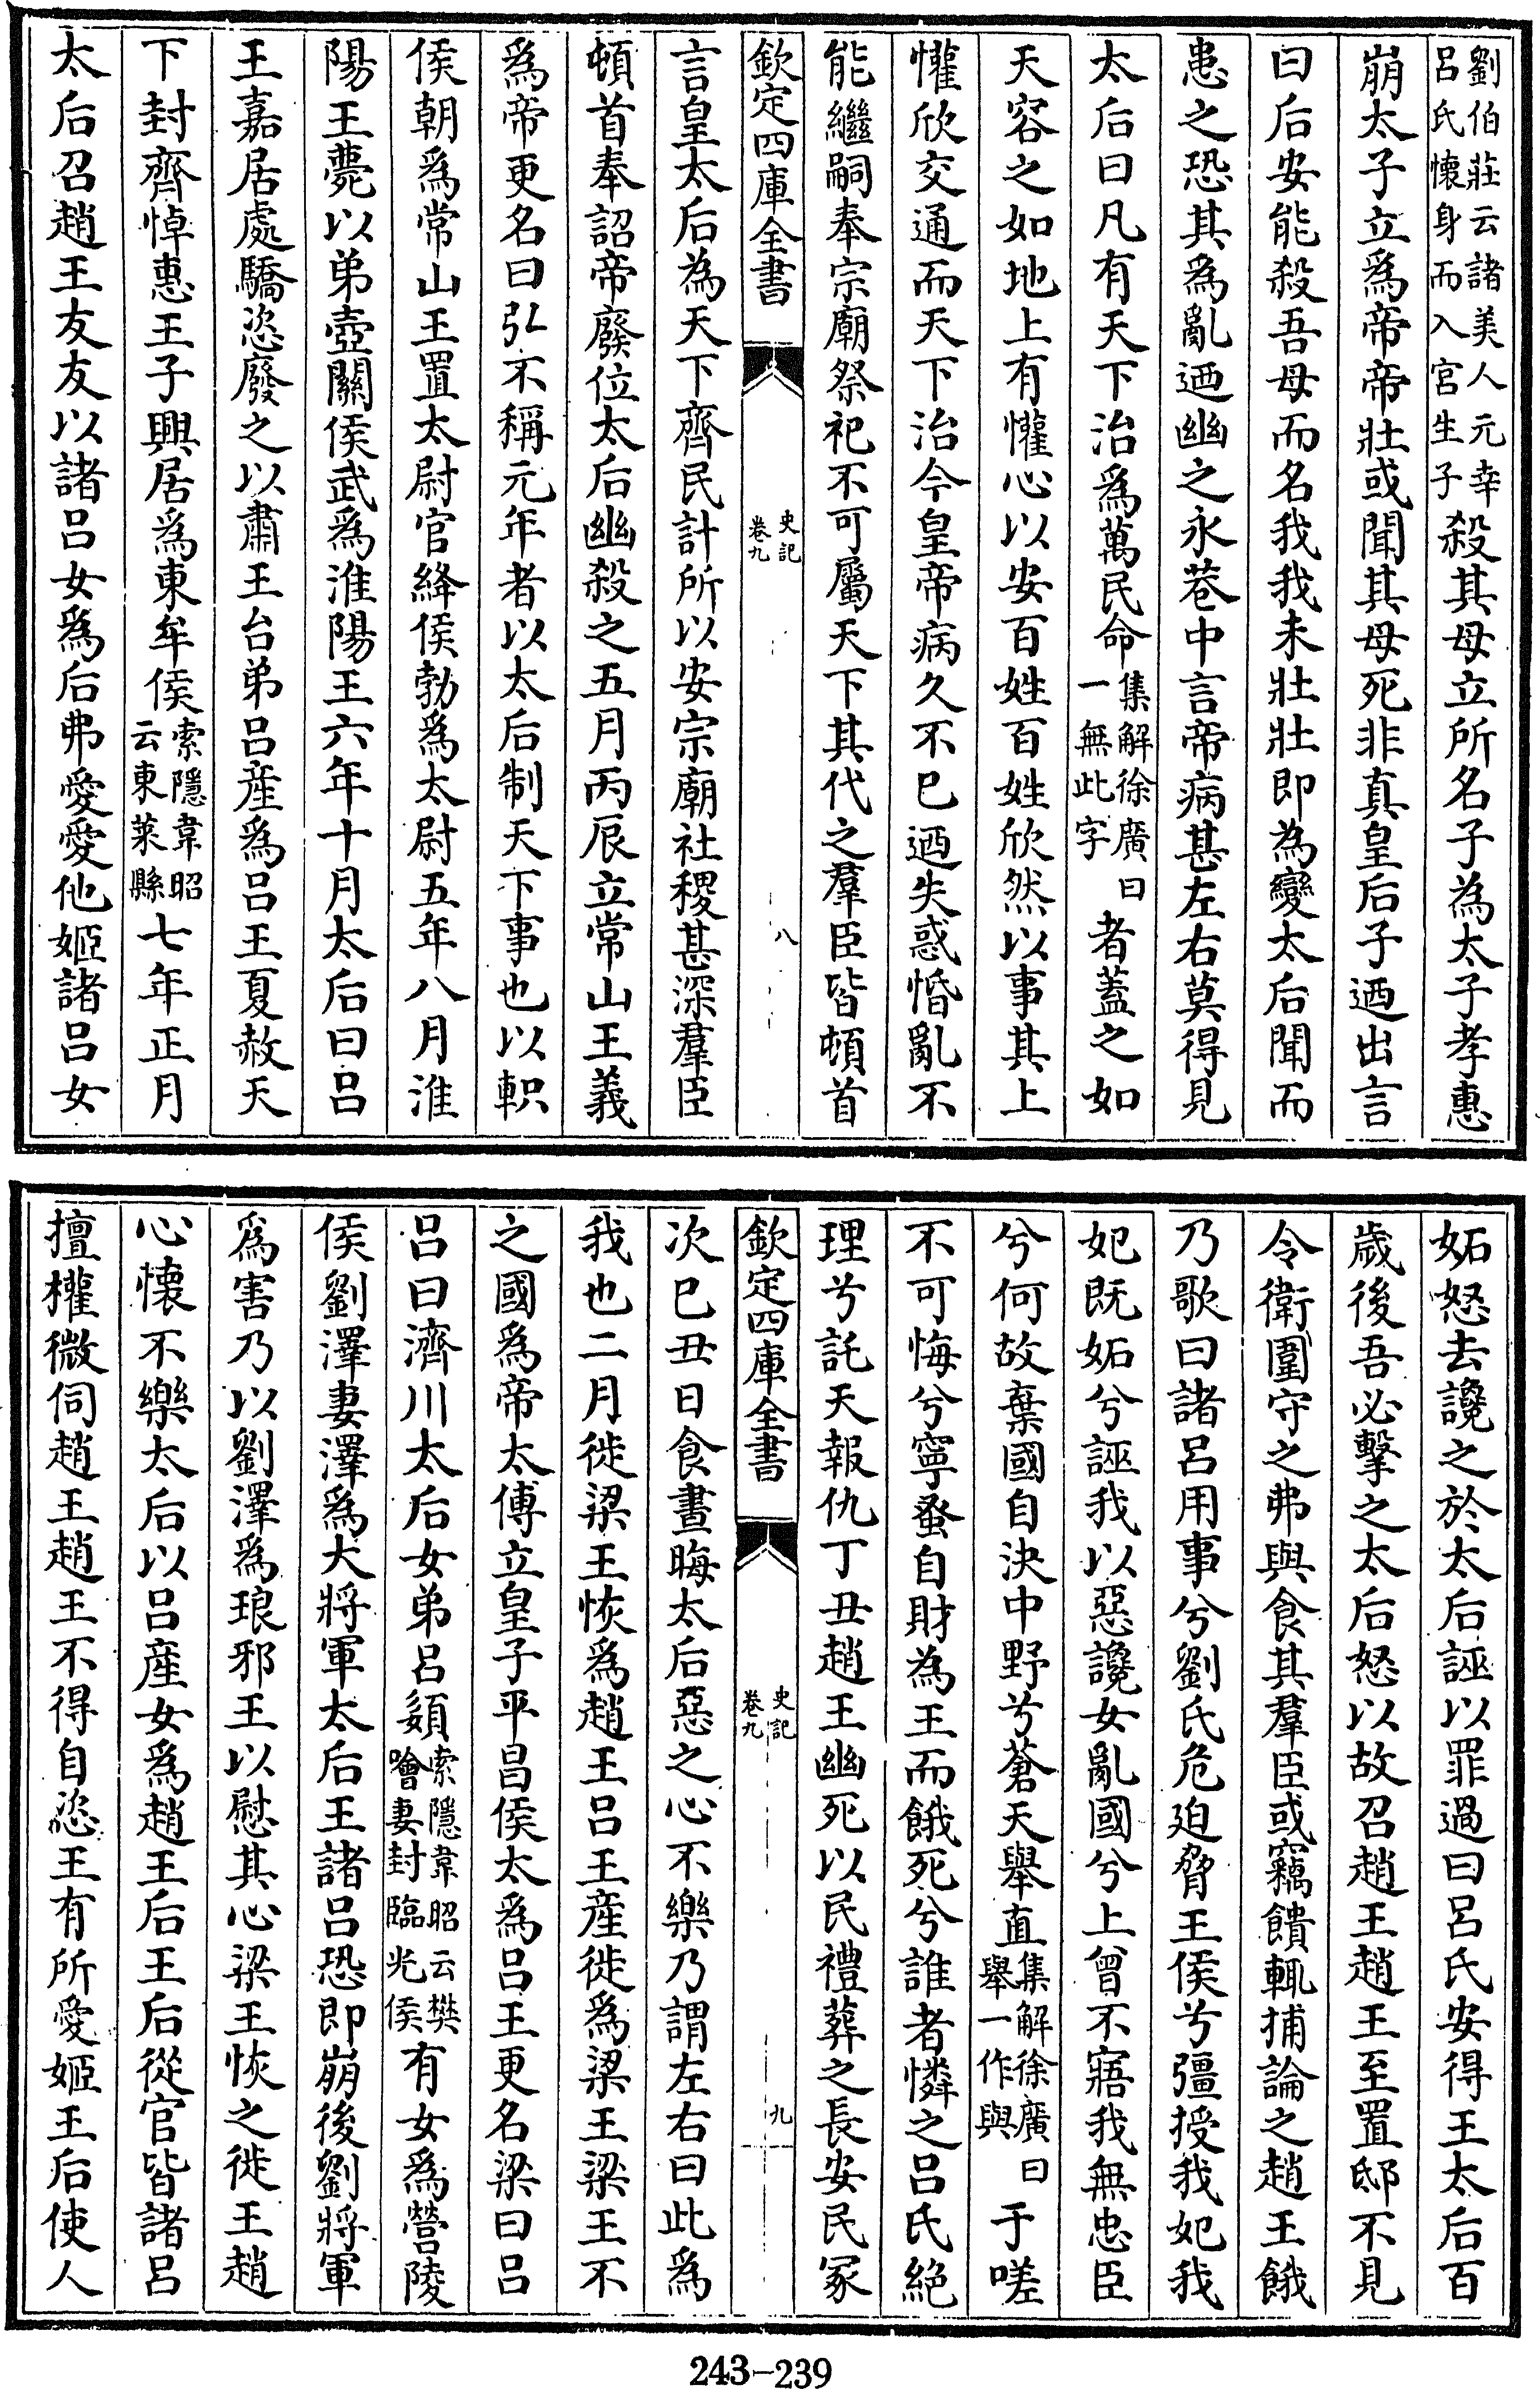 劉伯莊云諸美人元幸呂氏懷身而入宫生子殺其母立所名子為太子孝惠
崩太子立爲帝帝壯或聞其母死非真皇后子迺出言
曰后安能殺吾母而名我我未壯壯即為變太后聞而
患之恐其爲亂迺幽之永巷中言帝病甚左右莫得見
太后曰凡有天下治爲萬民命集解徐廣曰一無此字者蓋之如
天容之如地上有懽心以安百姓百姓欣然以事其上
懽欣交通而天下治今皇帝病久不已迺失惑惛亂不
能繼嗣奉宗廟祭祀不可屬天下其代之羣臣皆頓首
欽定四庫全書 史記卷九 八
言皇太后為天下齊民計所以安宗廟社稷甚深羣臣
頓首奉詔帝廢位太后幽殺之五月丙辰立常山王義
爲帝更名曰弘不稱元年者以太后制天下事也以軹
侯朝爲常山王置太尉官絳侯勃爲太尉五年八月淮
陽王薨以弟壺關侯武爲淮陽王六年十月太后曰呂
王嘉居處驕恣廢之以肅王台弟呂産爲呂王夏赦天
下封齊悼惠王子興居爲東牟侯索隱韋昭云東萊縣七年正月
太后召趙王友友以諸呂女爲后弗愛愛他姬諸呂女
妬怒去讒之於太后誣以罪過曰呂氏安得王太后百
歲後吾必擊之太后怒以故召趙王趙王至置邸不見
令衛圍守之弗與食其羣臣或竊饋輒捕論之趙王餓
乃歌曰諸呂用事兮劉氏危迫脅王侯兮彊授我妃我
妃既妬兮誣我以惡讒女亂國兮上曾不寤我無忠臣
兮何故棄國自決中野兮蒼天舉直集解徐廣曰舉一作與于嗟
不可悔兮寧蚤自財為王而餓死兮誰者憐之呂氏絕
理兮託天報仇丁丑趙王幽死以民禮葬之長安民冢
欽定四庫全書 史記卷九 九
次已丑日食晝晦太后惡之心不樂乃謂左右曰此爲
我也二月徙梁王恢爲趙王呂王産徙爲梁王梁王不
之國爲帝太傅立皇子平昌侯太爲呂王更名梁曰呂
呂曰濟川太后女弟呂嬃索隱韋昭云樊噲妻封臨光侯有女爲營陵
侯劉澤妻澤爲大將軍太后王諸呂恐即崩後劉將軍
爲害乃以劉澤爲琅邪王以慰其心梁王恢之徙王趙
心懷不樂太后以呂産女爲趙王后王后從官皆諸呂
擅權微伺趙王趙王不得自恣王有所愛姬王后使人
243-239